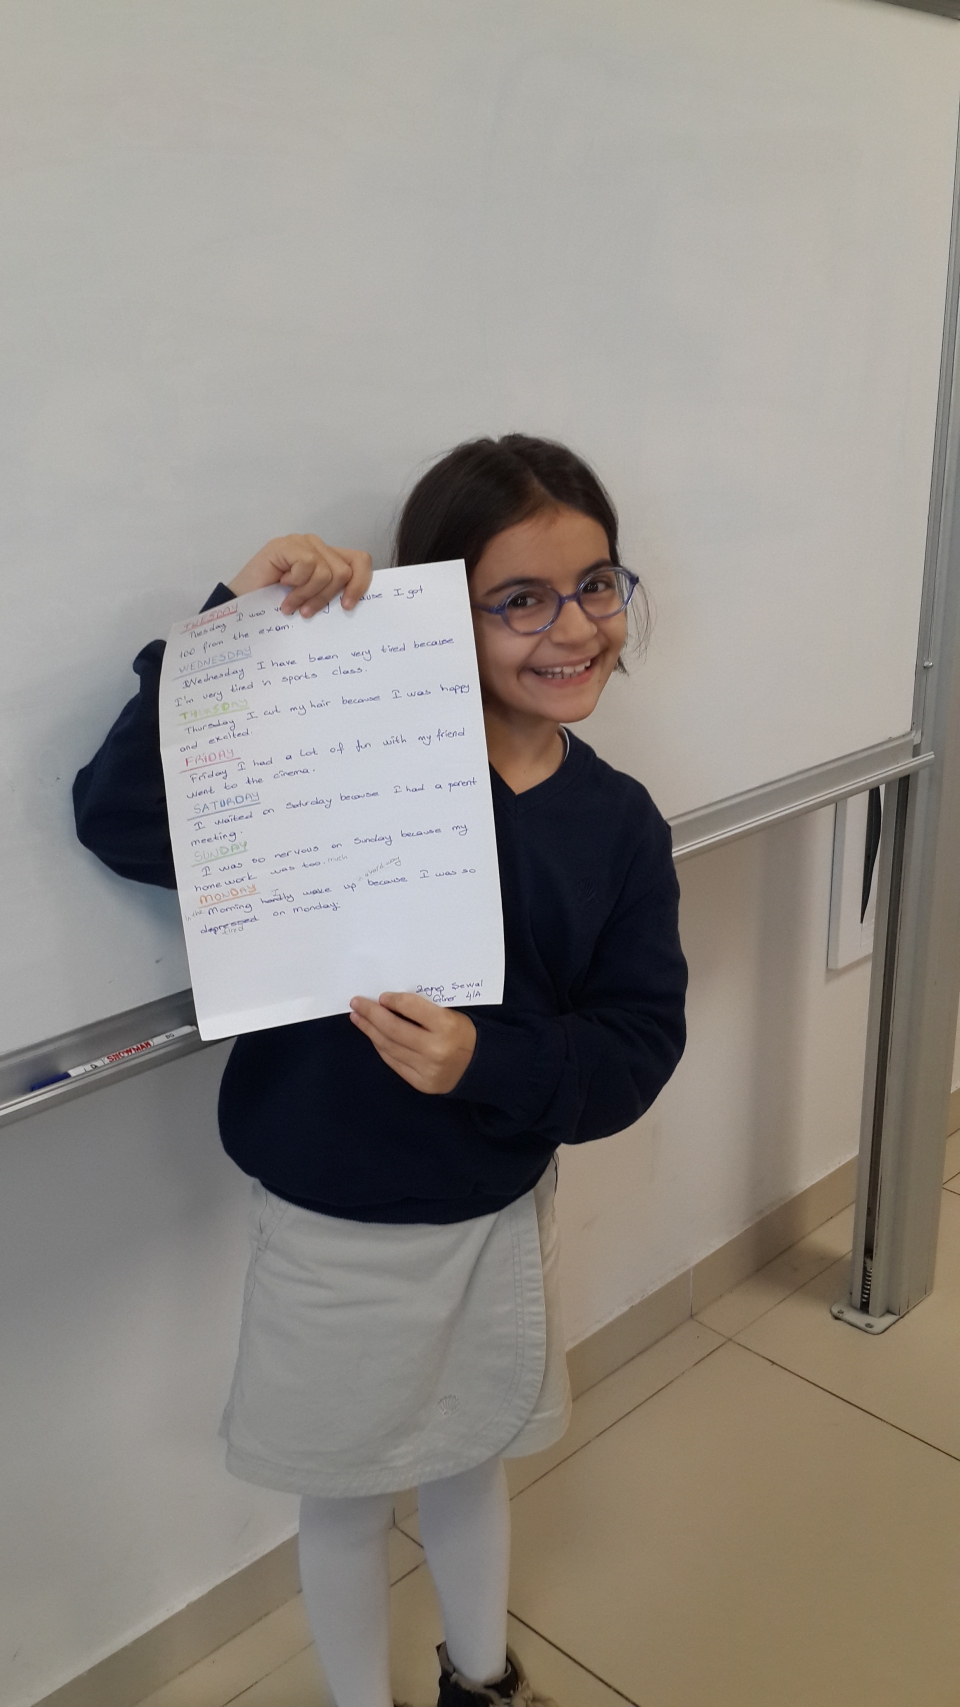 TUESDAY
Tuesday I was because I got
100 from the exam.
WEDNESDAY
Wednesday I have been very tired because
I'm very tired in sports class.
THURSDAY
Thursday I cut my hair because I was happy
and excited.
FRIDAY
Friday I had a lot of fun with my friend
went to the cinema.
SATURDAY
I waited on Saturday because I had a parent
meeting.
SUNDAY
I was so nervous on Sunday because my
homework was too much
MONDAY
in the Morning I hardly wake up because I was so
depressed on monday.
tired
Zeynep
4/A
SHOWMAN